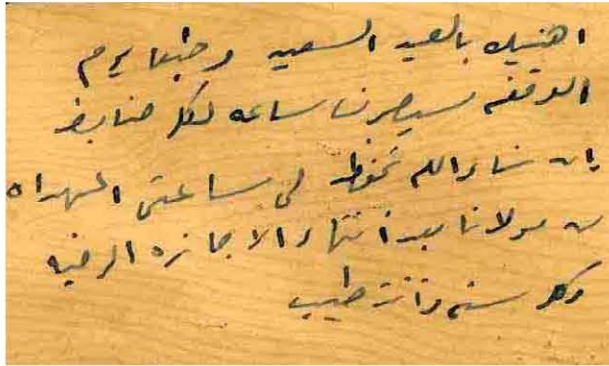 اهنيك بالعيد السعيد وطبعا يوم
الوقفه سيصرف ساعه لكل ضابط
ان شاء الله تحفظ لى ساعتى المهداه
من مولانا بعد انتهاء الاجازه المرضيه
وكل سنه وانت طيب